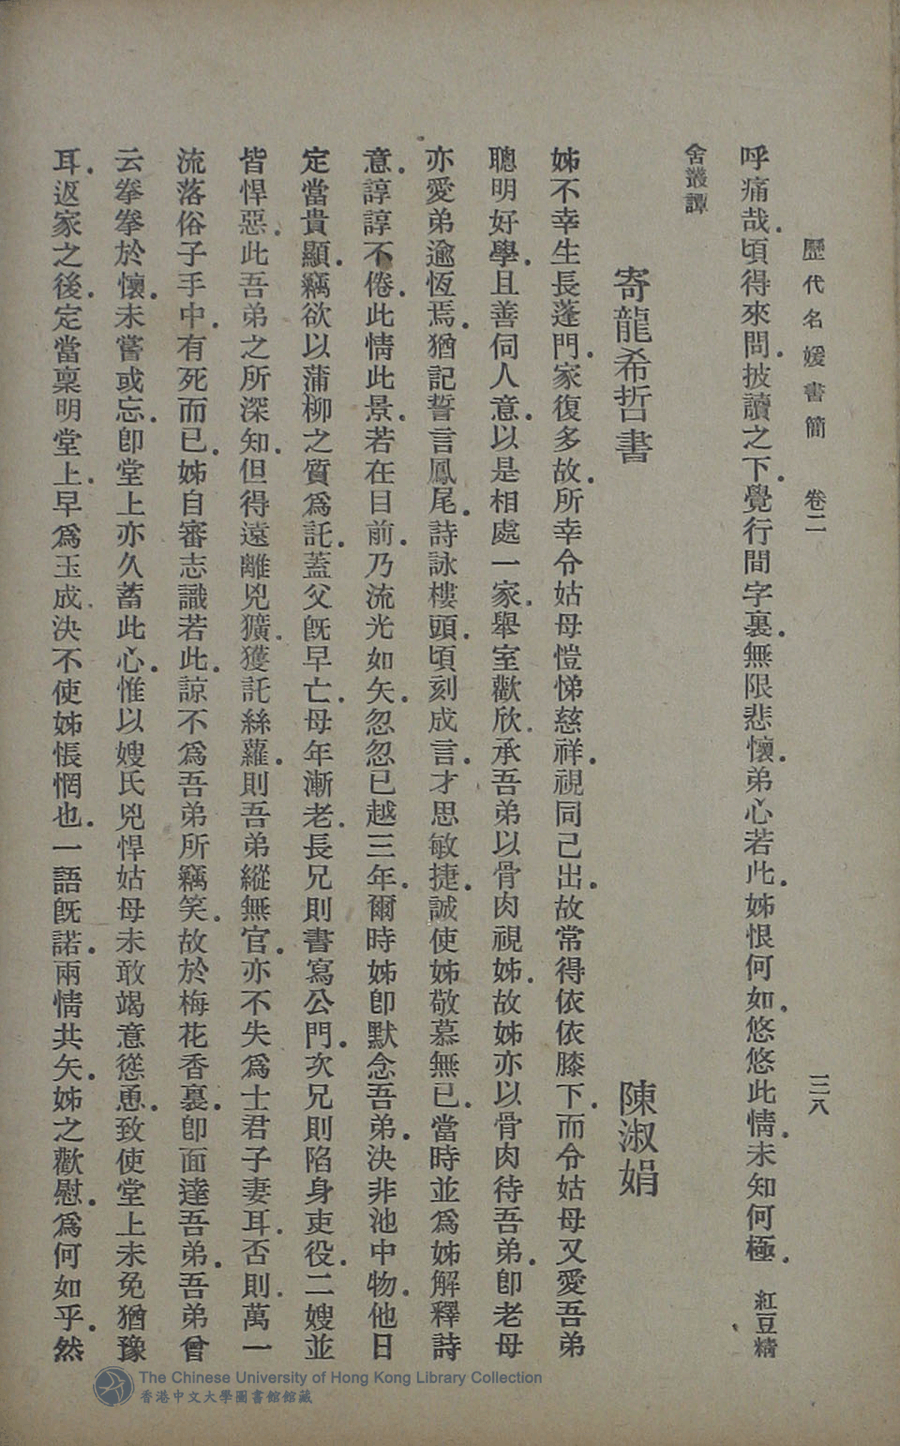 歷代名媛書簡 卷二 一三八
呼痛哉．頃得來問．披讀之下．覺行間字裏．無限悲懷．弟心若此．姊恨何如．悠悠此情．未知何極．紅豆精
舍叢譚
寄龍希哲書 陳淑娟
姊不幸生長蓬門．家復多故．所幸令姑母愷悌慈祥．視同己出．故常得依依膝下．而令姑母又愛吾弟
聰明好學．且善伺人意．以是相處一家．舉室歡欣．承吾弟以骨肉視姊．故姊亦以骨肉待吾弟．卽老母
亦愛弟逾恆焉．猶記誓言鳳尾．詩詠樓頭．頃刻成言．才思敏捷．誠使姊敬慕無已．當時並爲姊解釋詩
意．諄諄不倦．此情此景．若在目前．乃流光如矢．忽忽已越三年．爾時姊卽默念吾弟．決非池中物．他日
定當貴顯．竊欲以蒲柳之質爲託．蓋父旣早亡．母年漸老．長兄則書寫公門．次兄則陷身吏役．二嫂並
皆悍惡．此吾弟之所深知．但得遠離兇獷．獲託絲蘿．則吾弟縱無官．亦不失爲士君子妻耳．否則．萬一
流落俗子手中．有死而已．姊自審志識若此．諒不爲吾弟所竊笑．故於梅花香裏．卽面達吾弟．吾弟曾
云拳拳於懷．未嘗或忘．卽堂上亦久蓄此心．惟以嫂氏兇悍姑母未敢竭意慫恿．致使堂上未免猶豫
耳．返家之後．定當稟明堂上．早爲玉成．決不使姊悵惘也．一語旣諾．兩情共矢．姊之歡慰．爲何如乎．然
The Chinese University of Hong Kong Library Collection
香港中文大學圖書館館藏